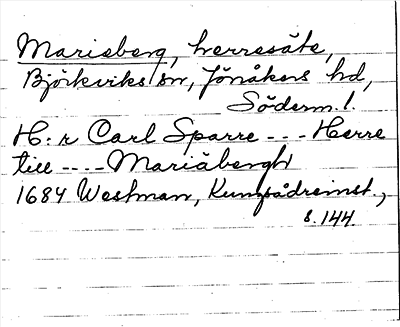 Marieberg, herresäte,
Björkviks sn, Jönåkers hd,
Söderm. l.
H:r Carl Sparre --- Herre
till ---- Mariäbergh
1684 Westman, Kungsådreinst.,
s. 144.